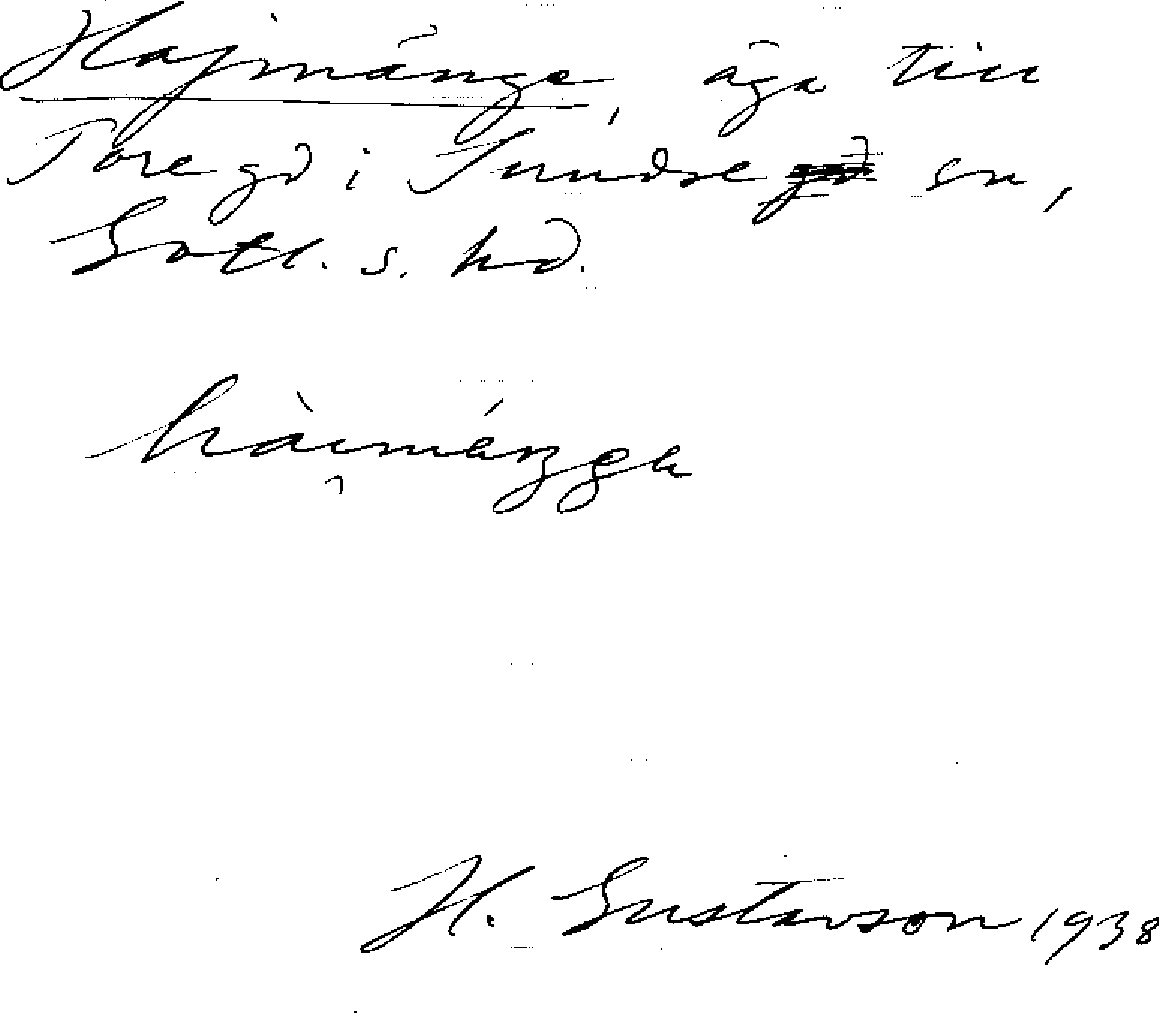 Hajmänge, äga till
Tore gd i Sundre sn,
Gotl. s. hd.
hài̯mä́ŋgɐ
H. Gustavson 1938